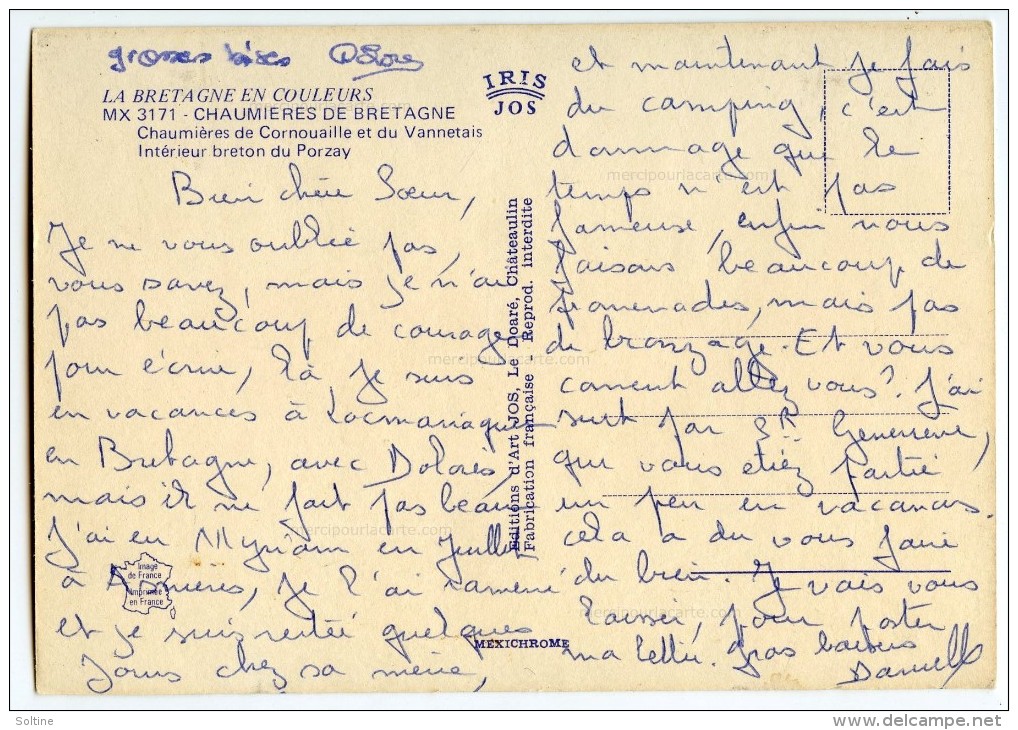 grosses bises Dolores
LA BRETAGNE EN COULEURS
MX 3171 - CHAUMIÈRES DE BRETAGNE
Chaumières de Cornouaille et du Vannetais
Intérieur breton du Porzay
IRIS
JOS
Bien chère Sœur,
Je ne vous oublie pas,
vous savez, mais je n'ai
pas beaucoup de courage
pour écrire, là, je suis
en vacances à Locmariaquer
en Bretagne, avec Dolorès,
mais il ne fait pas beau.
J'ai eu Myriam en Juillet
à Asnières, je l'ai ramené
et je suis restée quelques
jours chez sa mère,
et maintenant je fais
du camping, c'est
dommage que le
temps n'est pas
fameuse, enfin nous
faisons beaucoup de
promenades, mais pas
de bronzage. Et vous
comment allez vous? J'ai
surt par SR Geneviève,
que vous étiez partie
un peu en vacances.
cela a du vous faire
du bien. Je vais vous
laisser, pour poster
ma lettre. gros baisers
Danielle
Editions d'Art JOS, Le Doaré, Châteaulin
Fabrication française Reprod. interdite
Image
de France
Imprimée
en France
MEXICHROME
mercipourlacarte.com
mercipourlacarte.com
mercipourlacarte.com
mercipourlacarte.com
mercipourlacarte.com
Soltine
www.delcampe.net